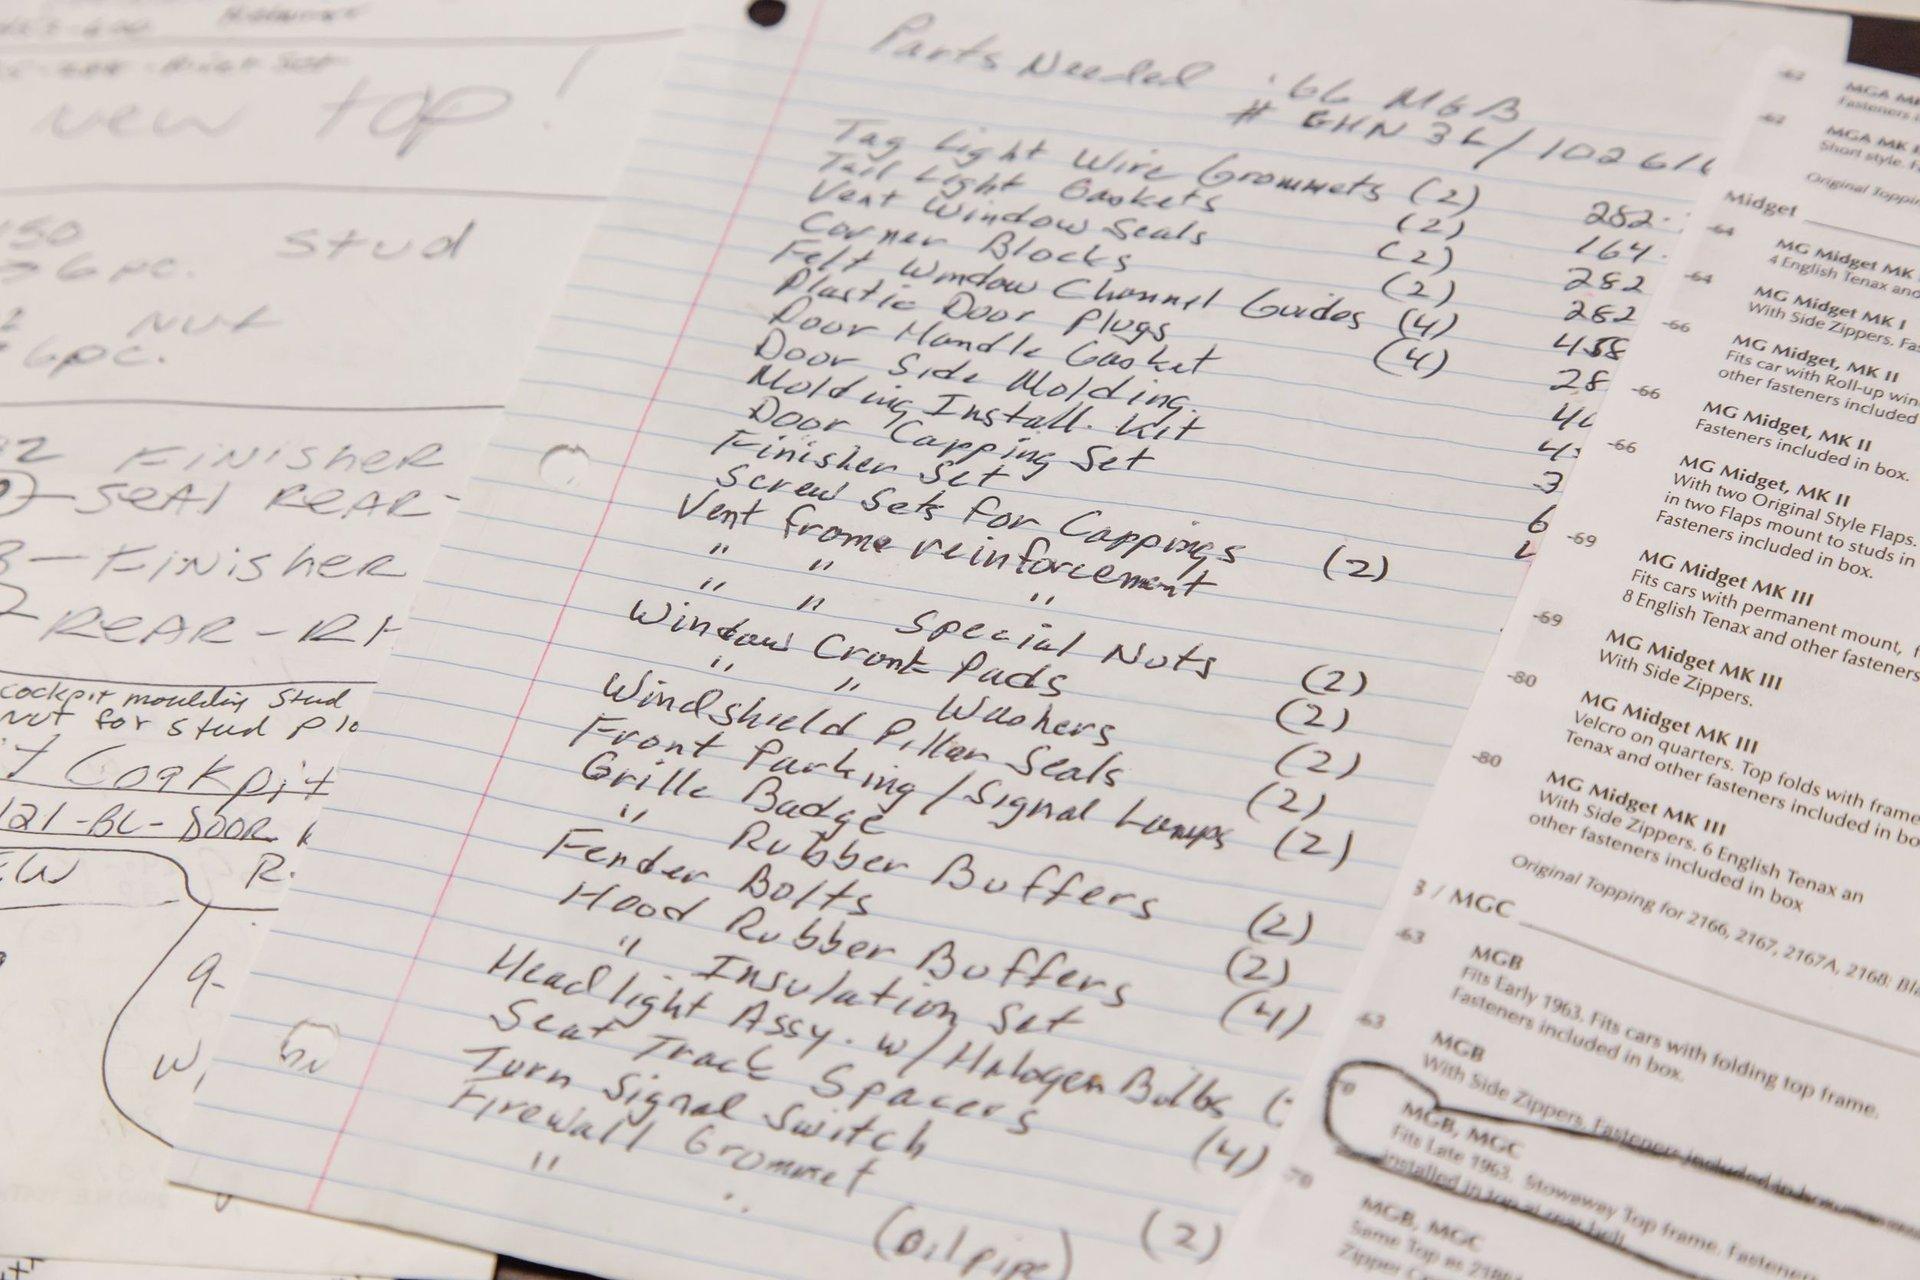 new top!
150 stud
6 pc.
Nut
6pc.
FINISHER
SEAL REAR-
FINISHER
REAR-RH
cockpit moulding stud
nut for stud
Cockpit
121-BL-DOOR
R.
9-
W,
Parts Needed '66 MGB
# GHN 3L/10261
Tag Light Wire Grommets (2) 282
Tail Light Gaskets (2) 164
Vent Window Seals (2) 282
Corner Blocks (2) 282
Felt Window Channel Guides (4) 458
Plastic Door Plugs (4) 28
Door Handle Gasket
Door Side Molding
Molding Install. Kit
Door Capping Set 3
Finisher Set 6
Screw Sets for Cappings (2)
Vent frame reinforcement
" " "
" " Special Nuts (2)
Window Crank Pads (2)
" " Washers (2)
Windshield Pillar Seals (2)
Front Parking/Signal Lamps (2)
Grille Badge
" Rubber Buffers (2)
Fender Bolts (2)
Hood Rubber Buffers (4)
" Insulation Set
Headlight Assy. w/Halogen Bulbs
Seat Track Spacers (4)
Turn Signal Switch
Firewall Grommet (2)
" " (Oil pipe)
-62 MGA
Fasteners
-62 MGA MK
Short style.
Original Toppin
Midget
-64 MG Midget MK
4 English Tenax and
-64 MG Midget MK I
With Side Zippers.
-66 MG Midget, MK II
Fits car with Roll-up
other fasteners included
-66 MG Midget, MK II
Fasteners included in box.
-66 MG Midget, MK II
With two Original Style Flaps.
in two Flaps mount to studs in
Fasteners included in box.
-69 MG Midget MK III
Fits cars with permanent mount,
8 English Tenax and other fasteners
-69 MG Midget MK III
With Side Zippers.
-80 MG Midget MK III
Velcro on quarters. Top folds with frame
Tenax and other fasteners included in bo
-80 MG Midget MK III
With Side Zippers. 6 English Tenax an
other fasteners included in box
Original Topping for 2166, 2167, 2167A, 2168:
/ MGC
-63 MGB
Fits Early 1963, Fits cars with folding top frame.
Fasteners included in box.
-63 MGB
With Side Zippers. Fasteners included in box.
MGB, MGC
Fits Late 1963. Stowaway Top frame. Fasteners
installed in top at rear
-70 MGB, MGC
Same Top as
Zipper